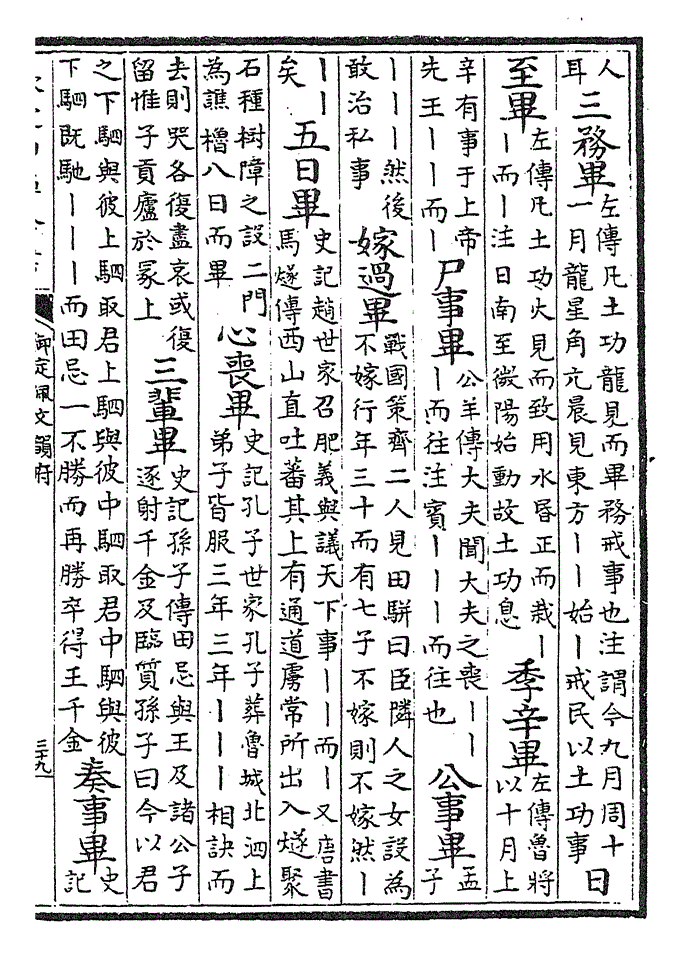 人耳三務畢左傳凡土功龍見而畢務戒事也注謂今九月周十一月龍星角亢晨見東方丨丨始丨戒民以土功事日
至畢左傳凡土功火見而致用水昏正而栽丨丨而丨注日南至微陽始動故土功息季辛畢左傳魯將以十月上
辛有事于上帝先王丨丨而丨尸事畢公羊傳大夫聞大夫之喪丨丨丨而往注賓丨丨丨而往也公事畢孟子
丨丨丨然後敢治私事嫁過畢戰國策齊二人見田駢曰臣隣人之女設為不嫁行年三十而有七子不嫁則不嫁然丨
丨丨矣五日畢史記趙世家召肥義與議天下事丨丨而丨又唐書馬燧傳西山直吐蕃其上有通道虜常所出入燧聚
石種樹障之設二門為譙櫓八日而畢心喪畢史記孔子世家孔子葬魯城北泗上弟子皆服三年三年丨丨丨相訣而
去則哭各復盡哀或復留惟子貢廬於冢上三輩畢史記孫子傳田忌與王及諸公子逐射千金及臨質孫子曰今以君
之下駟與彼上駟取君上駟與彼中駟取君中駟與彼下駟既馳丨丨丨而田忌一不勝而再勝卒得王千金奏事畢史記
御定佩文韻府
三十九